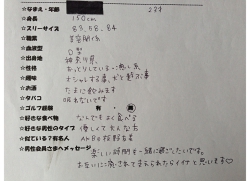 ☆なまえ・年齢 22才
☆身長 150cm
☆スリーサイズ 83.58.84
☆職業 美容関係
☆血液型 O型
☆出身地 神奈川県
☆性格 おっとりしている・癒し系
☆趣味 オシャレする事、犬と遊ぶ事
☆お酒 たまに飲みます
☆タバコ 吸わないです
☆ゴルフ経験 有・無
☆好きな食べ物 なんでもよく食べる
☆好きな男性のタイプ 優しくて大人な方
☆似ている?有名人 AKBの板野友美
☆男性会員さまへメッセージ
楽しい時間を一緒に過ごしたいです。
お互いに癒されて支えられたらイイナと思います♡